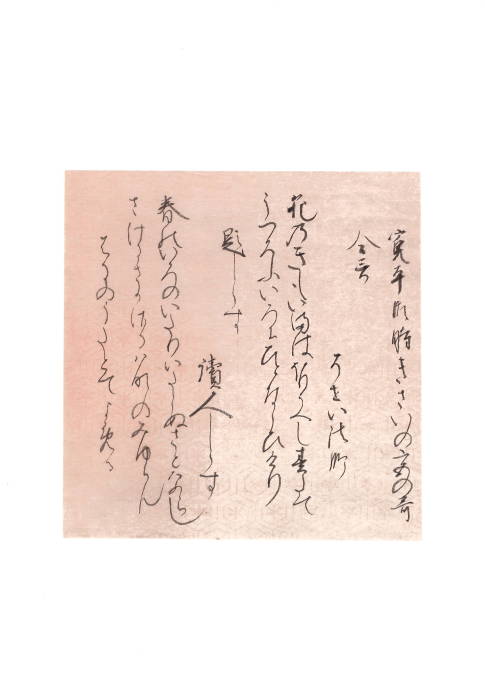 寛平御時きさいの宮の哥
合哥
そせい法師
花乃きもいまはほりうへし春たて
うつろふいろに人ならひけり
題しらす
讀人しらす
春のいろのいたりいたらぬさとはあらし
さけるさかさるハ那のみゆらん
はるのうたとてよめる